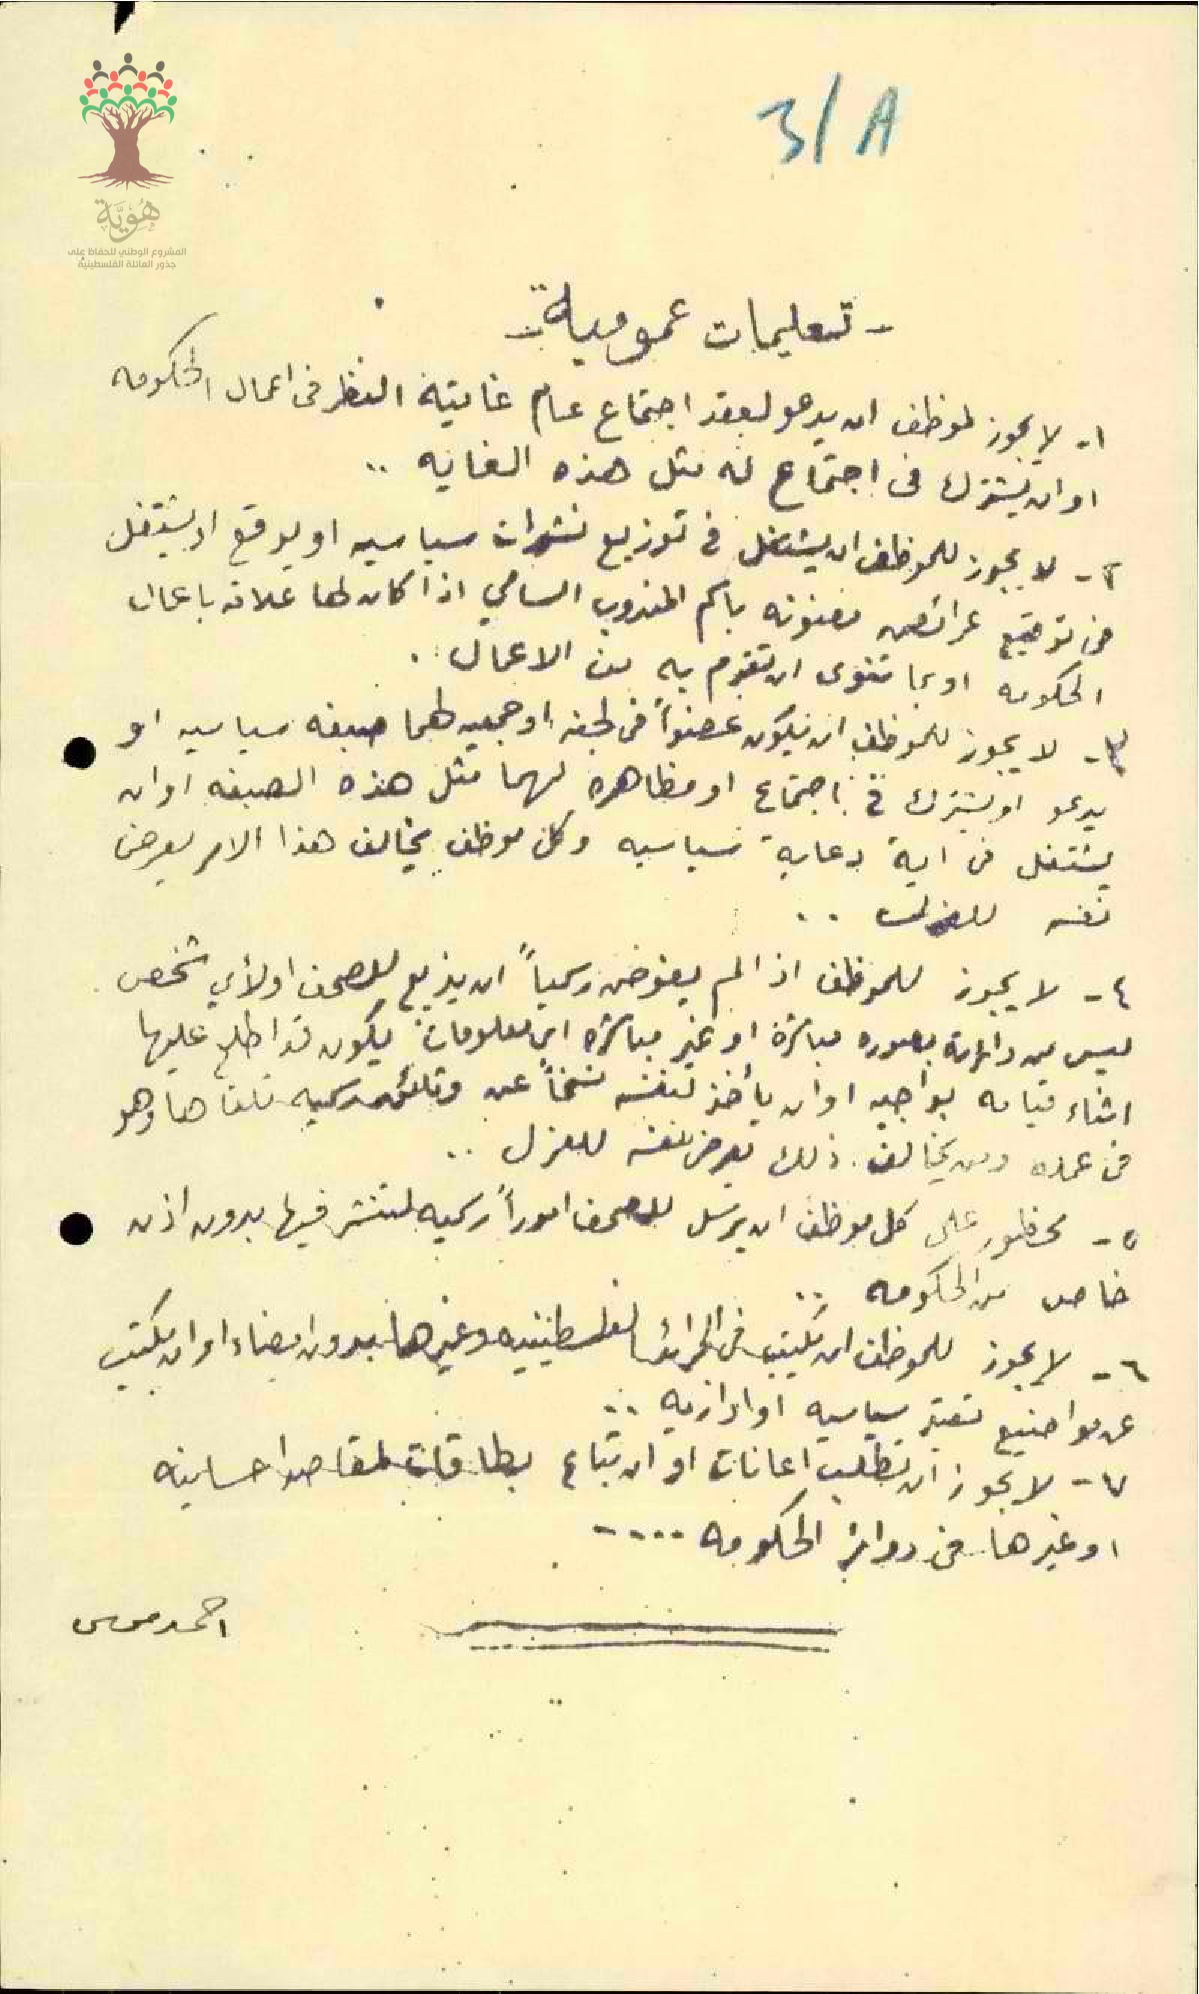 3/A
هُوِيَّة
المشروع الوطني للحفاظ على
جذور العائلة الفلسطينية
- تعليمات عمومية -
١- لا يجوز لموظف ان يدعو لعقد اجتماع عام غايته النظر في اعمال الحكومه
او ان يشترك في اجتماع له مثل هذه الغايه ..
٢- لا يجوز للموظف ان يشتغل في توزيع نشرات سياسيه او يوقع او يشتغل
في توقيع عرائض معنونه باسم المندوب السامي اذا كان لها علاقه باعمال
الحكومه او بما تنوى ان تقوم به من الاعمال .
٣- لا يجوز للموظف ان يكون عضواً في لجنه او جمعيه لهما صبغه سياسيه او
يدعو او يشترك في اجتماع او مظاهره لهما مثل هذه الصبغه او ان
يشتغل في اية دعاية سياسيه وكل موظف يخالف هذا الامر يعرض
نفسه للعزل ..
٤- لا يجوز للموظف اذا لم يفوض رسمياً ان يذيع للصحف او لأي شخص
ليس من دائرته بصوره مباشرة او غير مباشره اي معلومات يكون قد اطلع عليها
اثناء قيامه بواجبه او ان يأخذ لنفسه نسخاً عن وثائق رسميه تلقاها وهو
في عمله ومن يخالف ذلك يعرض نفسه للعزل ..
٥- محظور على كل موظف ان يرسل للصحف اموراً رسميه لتنشر فيها بدون اذن
خاص من الحكومه ..
٦- لا يجوز للموظف ان يكتب في الجرائد الفلسطينيه وغيرها بدون امضاء او ان يكتب
عن مواضيع تعتبر سياسيه او اداريه ..
٧- لا يجوز ان تطلب اعانات او ان تباع بطاقات لمقاصد احسانيه
او غيرها في دوائر الحكومه ....
احمد موسى